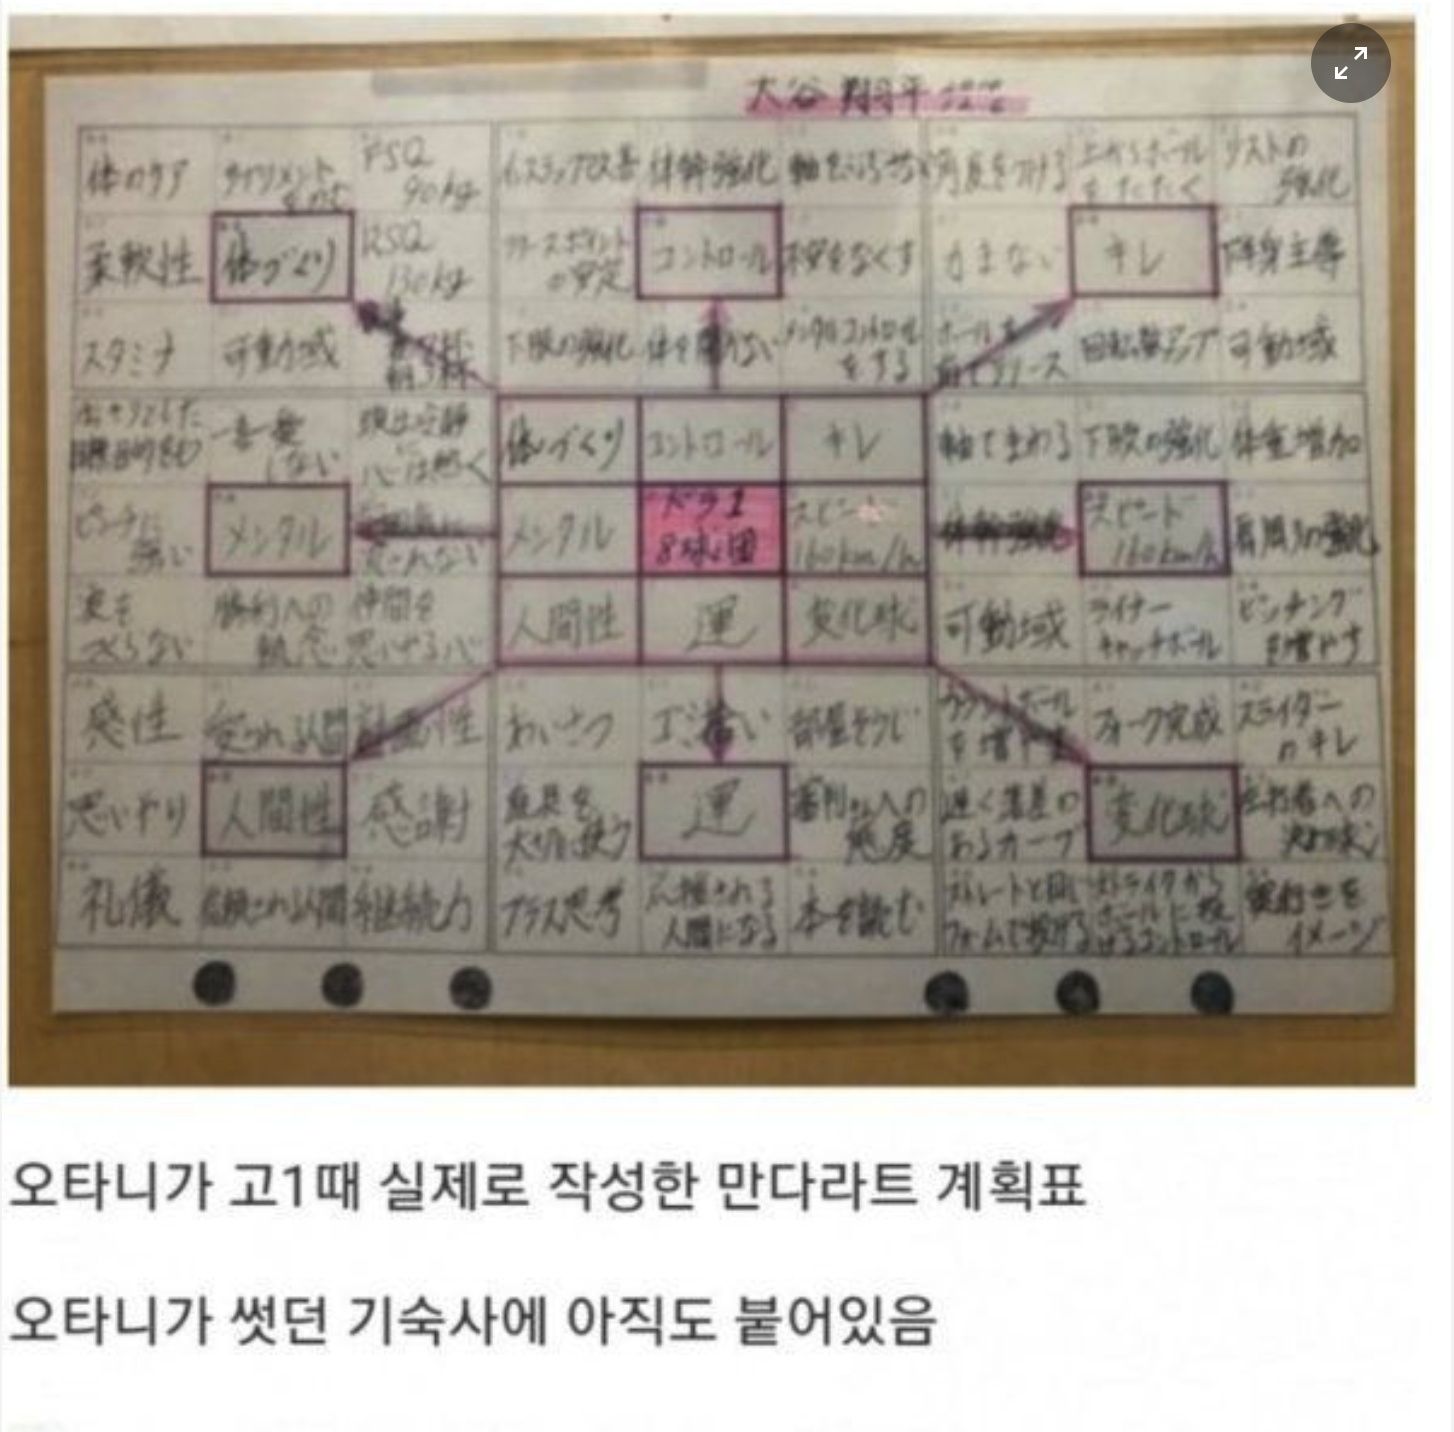 大谷 翔平
体のケア
サプリメント
をのむ
FSQ
90kg
インステップ改善
体幹強化
軸をぶらさない
角度をつける
上からボール
をたたく
リストの
強化
柔軟性
体づくり
RSQ
130kg
リリースポイント
の安定
コントロール
不安をなくす
力まない
キレ
下半身主導
スタミナ
可動域
下肢の強化
体を開かない
メンタルコントロール
をする
ボールを
前でリリース
回転数アップ
可動域
一喜一憂
しない
頭は冷静
に
心は熱く
体づくり
コントロール
キレ
軸でまわる
下肢の強化
体重増加
ピンチに
強い
メンタル
メンタル
ドラ1
8球団
スピード
160km/h
体幹強化
スピード
160km/h
肩周りの強化
波を
つくらない
勝利への
執念
仲間を
思いやる心
人間性
運
変化球
可動域
ライナー
キャッチボール
ピッチング
を増やす
感性
愛される人間
計画性
あいさつ
ゴミ拾い
部屋そうじ
カウントボール
を増やす
フォーク完成
スライダー
のキレ
思いやり
人間性
感謝
道具を
大切に使う
運
審判さんへの
態度
遅く落差の
あるカーブ
変化球
左打者への
決め球
礼儀
信頼される人間
継続力
プラス思考
応援される
人間になる
本を読む
ストレートと同じ
フォームで投げる
ストライクから
ボールに投
げるコントロール
奥行きを
イメージ
오타니가 고1때 실제로 작성한 만다라트 계획표
오타니가 썻던 기숙사에 아직도 붙어있음